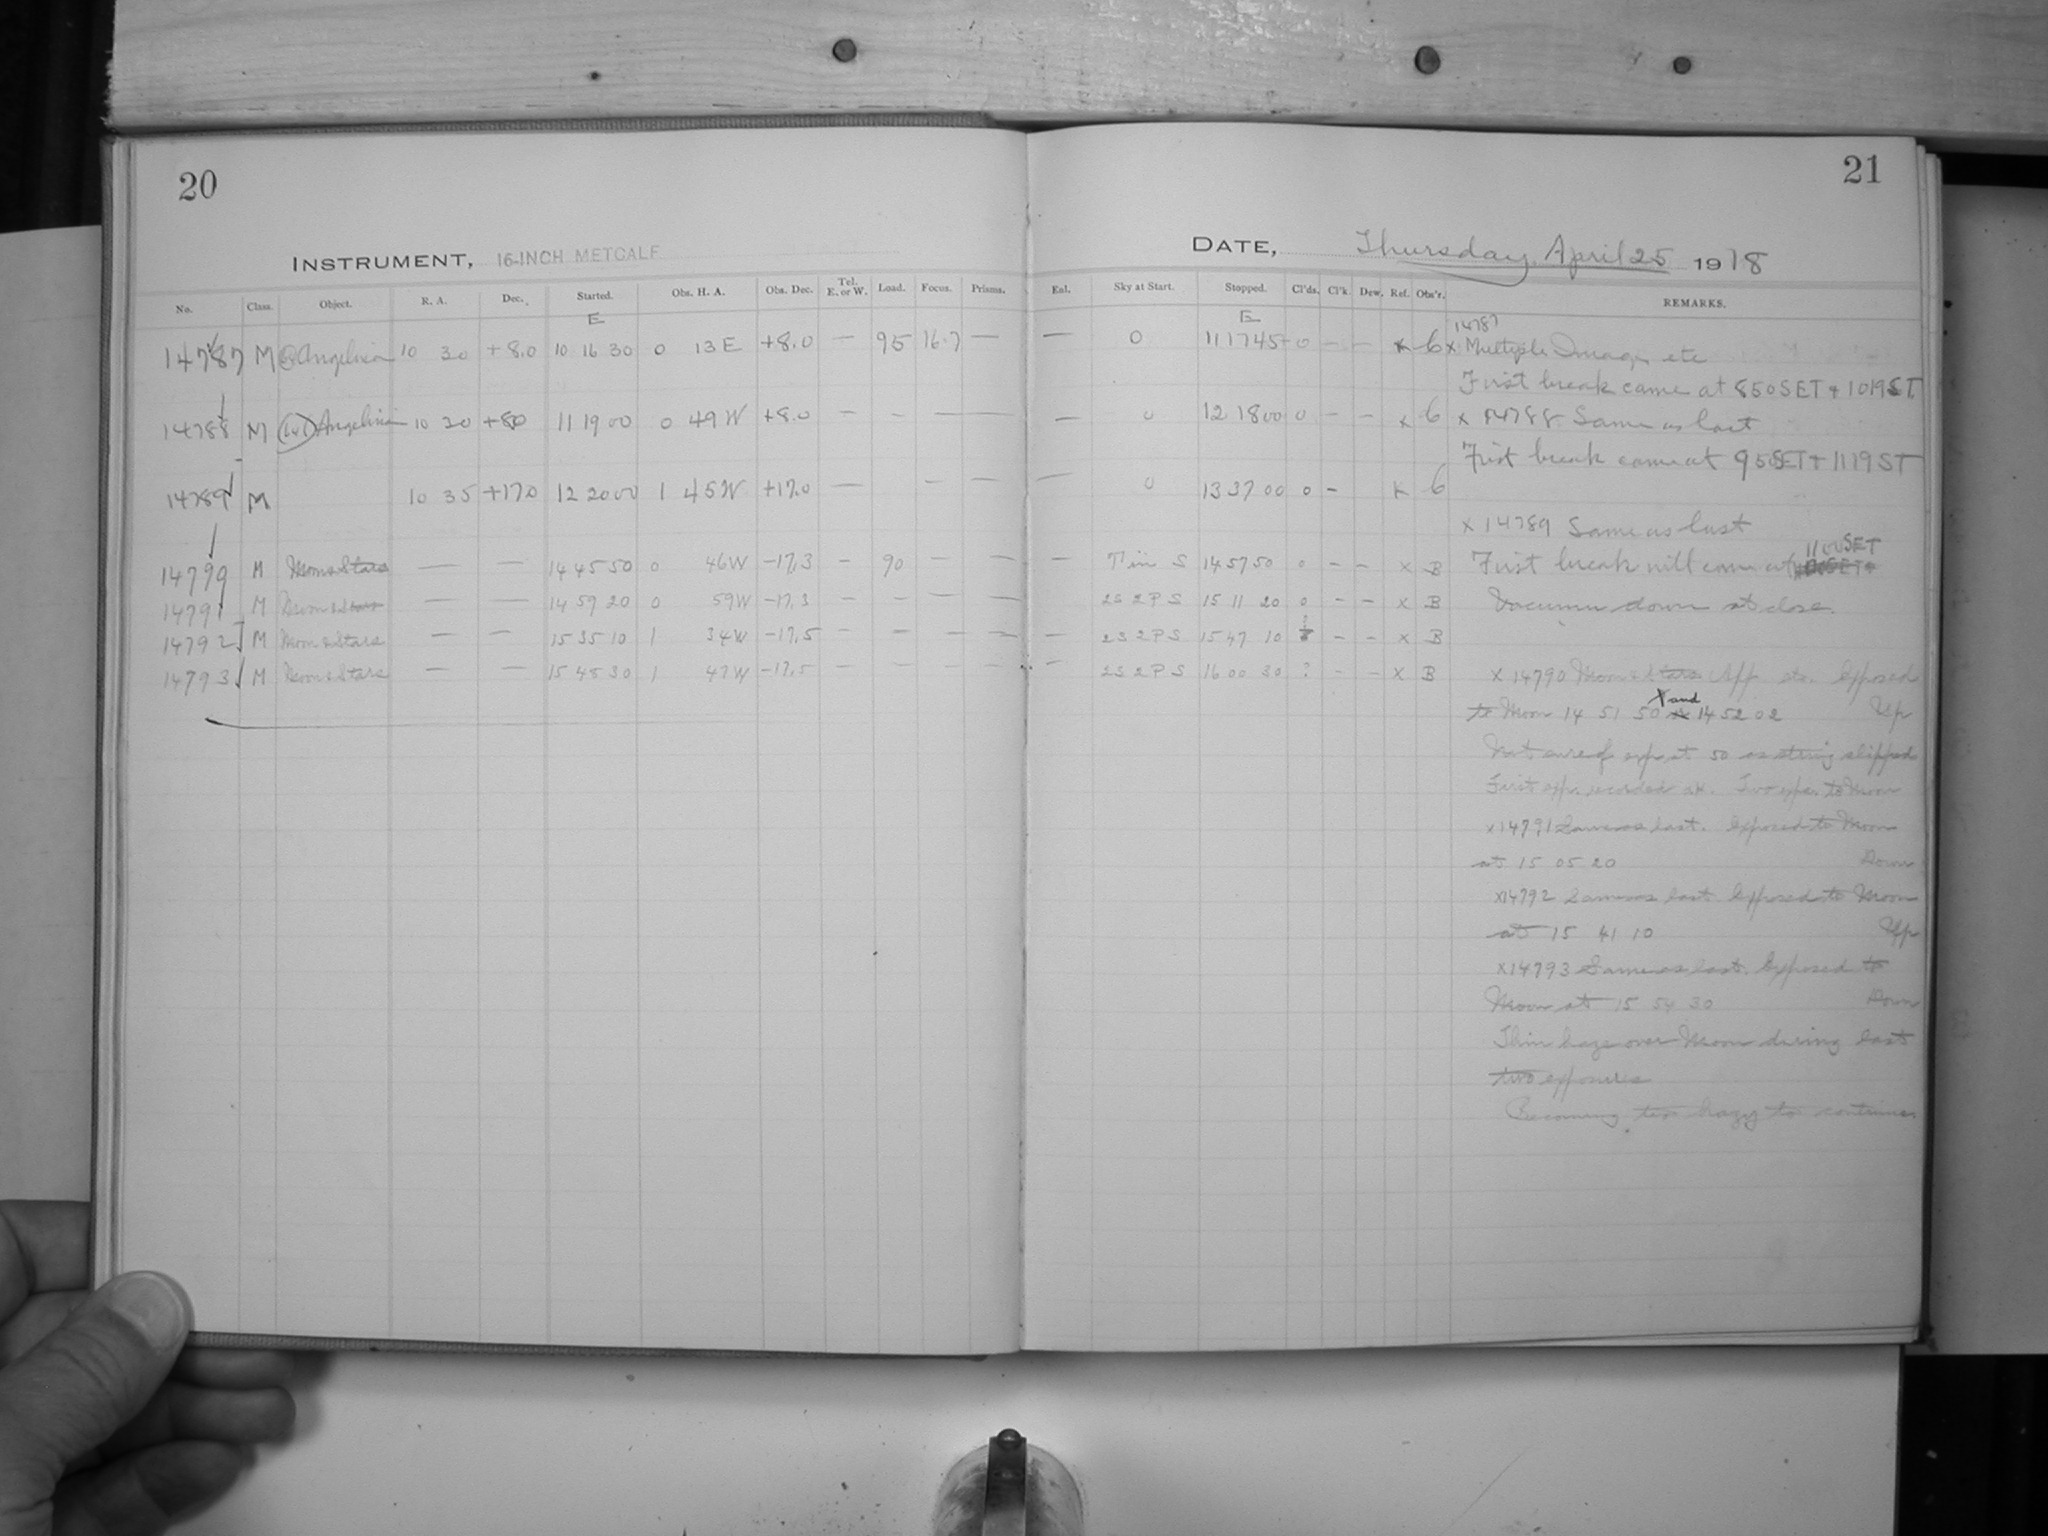 20
INSTRUMENT, 16-INCH METCALF
No. Class. Object. R. A. Dec. Started. Obs. H. A. Obs. Dec. Tel. E. or W. Load. Focus. Prisms.
E
14787 M Angelina 10 30 +8.0 10 16 30 0 13 E +8.0 — 95 16.7 —
14788 M Angelina 10 20 +80 11 19 00 0 49 W +8.0 — - — —
14789 M 10 35 +17.0 12 20 00 1 45 W +17.0 — — — —
14790 M Moon & Stars — — 14 45 50 0 46 W -17.3 - 90 — —
14791 M Moon & Stars — — 14 59 20 0 59 W -17.3 - - — —
14792 M Moon & Stars — — 15 35 10 1 34 W -17.5 - - — —
14793 M Moon & Stars — — 15 48 30 1 47 W -17.5 - - — —
21
DATE, Thursday April 25 1918
Enl. Sky at Start. Stopped. Cl'ds. Cl'k. Dew. Ref. Obs'r. REMARKS.
E
— 0 11 17 45 0 - - x 6 x 14787 Multiple Image etc
First break came at 850SET & 1019ST
— 0 12 18 00 0 - - x 6 x 14788 Same as last
First break came at 950SET + 1119ST
— 0 13 37 00 0 - x 6
x 14789 Same as last
— S 14 57 50 0 - - x B First break will come at 1100SET
2S 2P S 15 11 20 0 - - x B Vacuum down at close.
— 2S 2P S 15 47 10 - - x B
— 2S 2P S 16 00 30 ? - - x B x 14790 Moon & Stars App etc. Exposed
to Moon 14 51 50 x and 14 52 02 Up
Not sure of exp at 50 as string slipped
First exp. recorded ok. Two exps. to Moon
x 14791 Same as last. Exposed to Moon
at 15 05 20 Down
x14792 Same as last. Exposed to Moon
at 15 41 10 Up
x14793 Same as last. Exposed to
Moon at 15 54 30 Down
Thin haze over Moon during last
two exposures
Becoming too hazy to continue.